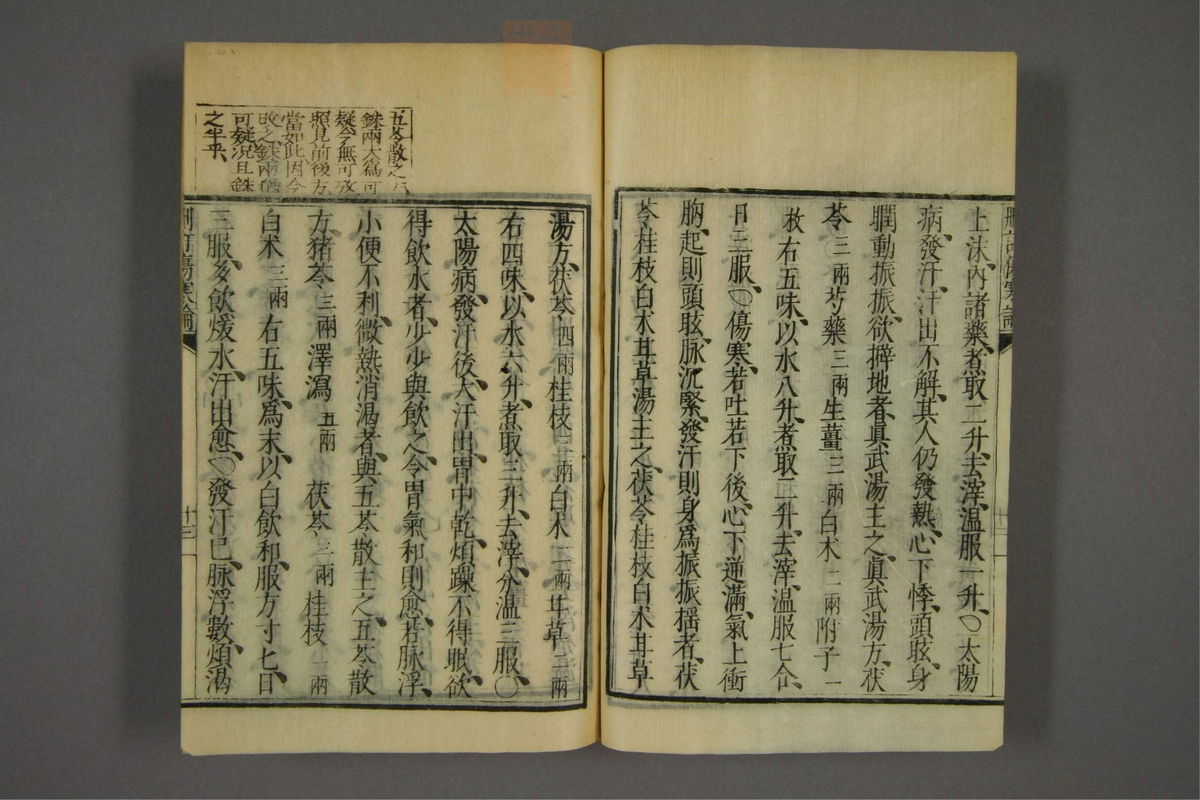 上沫、內諸藥、煮取二升、去滓、溫服一升、〇太陽
病、發汗、汗出不解、其人仍發熱、心下悸、頭眩、身
瞤動、振振、欲擗地者、眞武湯主之、眞武湯方、茯
苓三兩芍藥三兩生薑三兩白朮二兩附子一
枚右五味、以水八升、煮取三升、去滓、溫服七合、
日三服、〇傷寒、若吐若下後、心下逆滿、氣上衝
胸、起則頭眩、脉沉緊、發汗則身爲振振搖者、茯
苓桂枝白朮甘草湯主之、茯苓桂枝白朮甘草
湯方、茯苓四兩桂枝三兩白朮二兩甘草二兩
右四味、以水六升、煮取三升、去滓、分溫三服、〇
太陽病、發汗後、大汗出、胃中乾、煩躁不得眠、欲
得飮水者、少少與飮之、令胃氣和則愈、若脉浮、
小便不利、微熱消渴者、與五苓散主之、五苓散
方、猪苓三兩澤瀉五兩茯苓三兩桂枝二兩
白朮三兩右五味、爲末、以白飮和、服方寸匕、日
三服、多飮煖水、汗出愈、〇發汗已、脉浮數、煩渴
刪訂傷寒論
十三
五苓散之
銖兩大爲可
疑今無可攷
照見前後方
當如此因今
改之銖兩猶
可疑況且銖
之半乎、